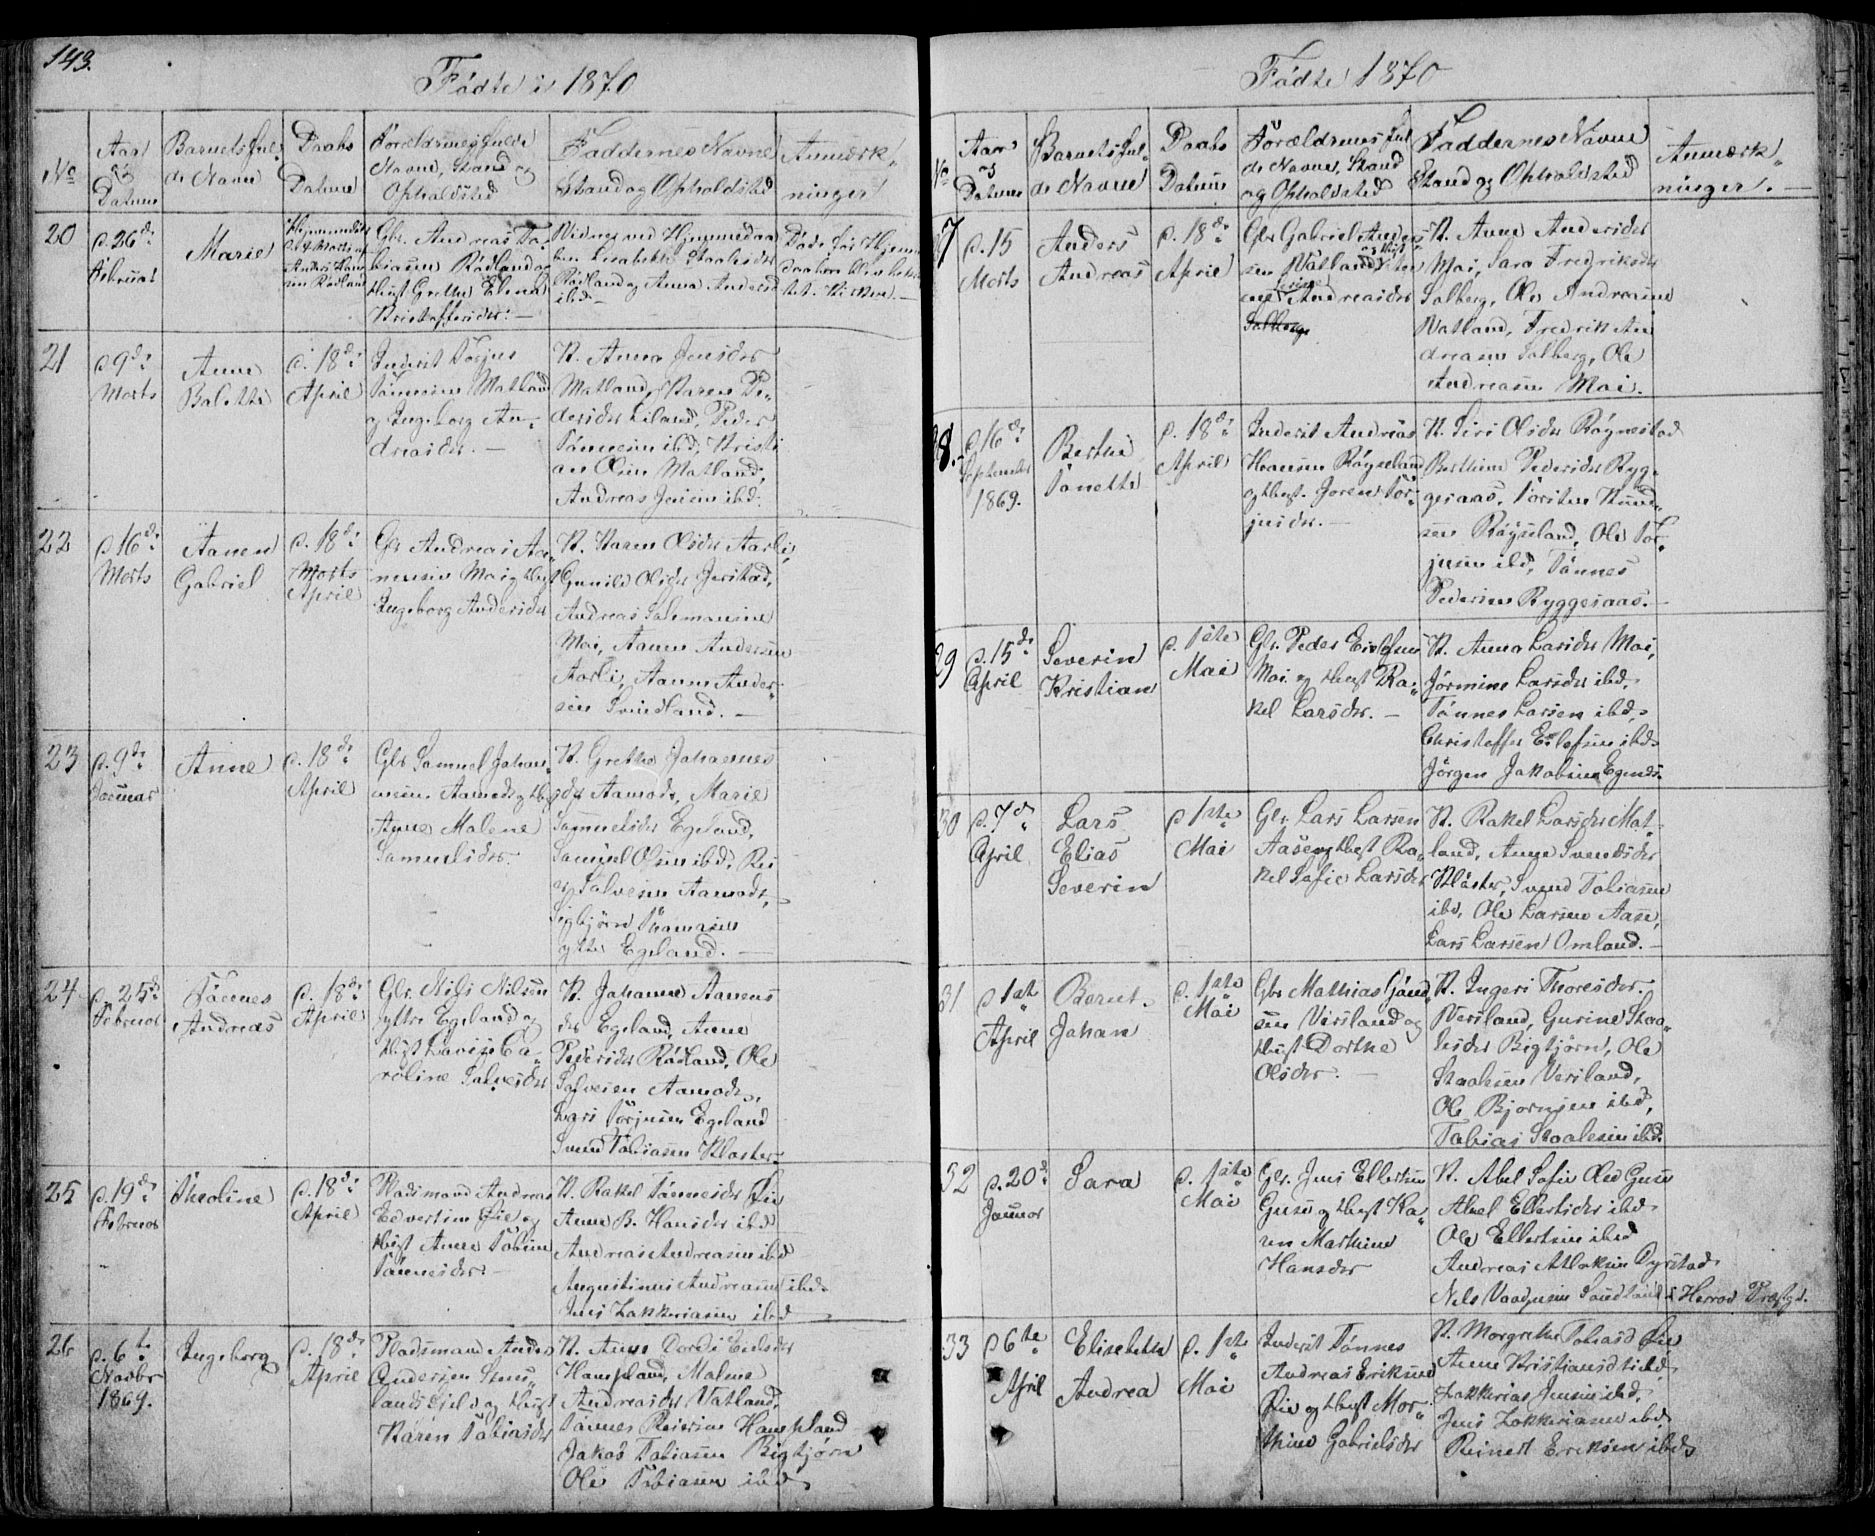 143.
Födte i 1870
No
Aar
og
Datum
Barnets ful-
de Navn
Daabs
Datum
Forældrenes fulde
Navne, Stand og
Opholdsted
Faddernes Navne
Stand og Opholdsted
Anmærk-
ninger
20
d. 26de
Februar
Marie
Gbr. Andreas To-
biasen Rödland og
Hust Grethe Elene
Kristoffersdtr. —
Vidner ved Hjemmedaa
ben Lisabeth Staalesdtr
Rödland og Anna Andersd
ibd —
Döde för Hjemme
daaben blev
21
d. 9de
Marts
Anne
Bolette
d. 18de
April
Inderst Törjus
Tönnesen Matland
og Ingeborg An-
dreasdtr. —
K. Anna Jensdtr
Matland, Karen Pe-
dersdtr Eiland, Peder
Tönnesen ibd, Kristi
an Olsen Matland,
Andreas Jensen ibd.
22
d. 16de
Marts
Aanen
Gabriel
d. 18de
Marts
April
Gbr Andreas Aa-
nensen Moi og Hust
Ingeborg Andersdtr
K. Karen Olsdtr Aarli,
Gunild Olsdtr Jerstad,
Andreas Salemonsen
Moi, Aanen Andersen
Aarli, Aanen Ander-
sen Svindland. —
23
d. 9de
Januar
Anne
d. 18de
April
Gbr Samuel Johan-
nesen Aamodt og Hust
Anne Malene
Samuelsdtr.
K. Grethe Johannes
dtr Aamodt, Marie
Samuelsdtr Egeland,
Samuel Olsen ibd, Rei
er Salvesen Aamodt,
Sigbjörn Thomasen
yttre Egeland. —
24
d. 25de
Februar
Tönnes
Andreas
d. 18de
April
Gbr. Nils Nilsen
yttre Egeland og
Hust Lovise Ca-
roline Salvesdtr
K. Johanne Aanens
dtr Egeland, Anne
Pedersdtr Rödland, Ole
Salvesen Aamodt,
Lars Törjusen Egeland
Svend Tobiasen Kloster.
25
d. 19de
Februar
Theoline
d. 18de
April
Pladsmand Andreas
Edvertsen Öie og
Hust Anne Tobine
Tönnesdtr.
K. Rakel Tönnesdtr Öie
Anne B. Hansdtr ibd
Andreas Andreasen ibd
Augustinus Andreasen ibd.
Jens Zakkariasen ibd
26
d. 6te
Novbr
1869.
Ingeborg
d. 18de
April
Pladsmand Anders
Andersen Stens-
landskjeld og Hust
Karen Tobiasdtr
K. Anne Dordi Eielsdtr
Hampland, Malene
Andreasdtr Vatland,
Tönnes Reiersen Hampland
Jakob Tobiasen Bigtjörn
Ole Tobiasen ibd.
Födte 1870
No
Aar
og
Datum
Barnets ful-
de Navn
Daabs
Datum
Forældrenes ful
de Navne, Stand
og Opholdsted
Faddernes Navne
Stand og Opholdsted
Anmærk-
ninger. —
27
d. 15
Marts
Anders
Andreas
d. 18de
April
Gbr Gabriel Anders-
sen Vatland og Hust
Andreasdtr
Solberg
K. Anne Andersdtr
Moi, Sara Fredriksdtr
Solberg, Ole Andreasen
Vatland, Fredrik An
dreasen Solberg, Ole
Andreasen Moi.
28.
d. 16de
September
1869.
Berthe
Tonette
d. 18de
April
Inderst Andreas
Hansen Röyseland
og Hust. Joren Tör-
jusdtr. —
K. Siri Olsdtr Röynestad
Berthine Pedersdtr Ryg-
gesaas, Torsten Knud-
sen Röyseland, Ole Tör-
jusen ibd, Tönnes
Pedersen Ryggesaas. —
29
d. 15de
April
Severin
Kristian
d. 1ste
Mai
Gbr. Peder Eielfsen
Moi og Hust Ra-
kel Larsdtr. —
K. Anna Larsdtr Moi,
Jörmine Larsdtr ibd,
Tönnes Larsen ibd,
Christoffer Eilefsen ibd
Jörgen Jakobsen Egends.
30
d. 7de
April
Lars
Elias
Severin
d 1ste
Mai
Gbr Lars Larsen
Aase og Hust Ra-
kel Sofie Larsdtr
K. Rakel Larsdtr Mat-
land, Anne Svendsdtr
Kloster, Svend Tobiasen
ibd, Ole Larsen Aase,
Lars Larsen Omland. —
31
d 1ste
April
Bernt
Johan
d. 1ste
Mai
Gbr Mathias Günd
sen Versland og
Hust Dorthe
Olsdtr. —
K. Ingeri Thoresdtr.
Versland, Gurine Staa-
lesdtr Bigtjörn, Ole
Staalesen Versland,
Ole Bjornsen ibd,
Tobias Staalesen ibd.
32
d. 20de
Januar
Sara
d. 1ste
Mai
Gbr. Jens Ellertsen
Gusu og Hust Ka-
ren Marthine
Hansdtr
K. Abel Sofie Olsd Gusu
Abel Ellertsdtr ibd.
Ole Ellertsen ibd
Andreas Atlaksen Dyrstad
Nels Vaagesen Sandland i Herrad Præstgj.
33
d 6te
April
Elisebeth
Andrea
d. 1ste
Mai
Inderst Tönnes
Andreas Eriksen
Öie og Hust Mar-
thine Gabrielsdtr
K. Margrethe Tobiasd Öie
Anne Kristiansd ibd,
Zakkarias Jensen ibd,
Jens Zakkariasen ibd
Reinert Eriksen ibd.